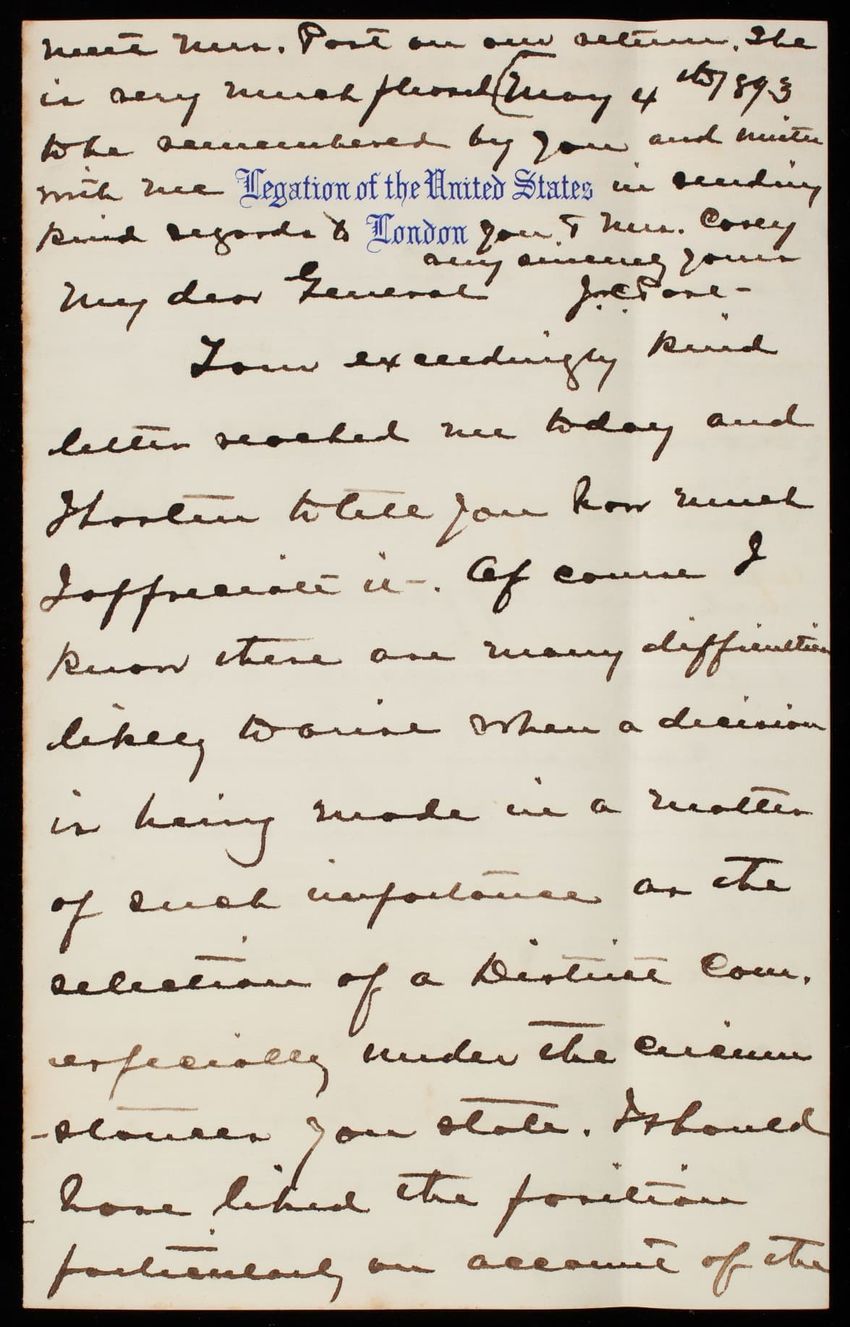 meet Mrs. Post on our return. She
is very much pleased (May 4th/893
to be remembered by you and unites
with me Legation of the United States in sending
kind regards to London you & Mrs. Casey
very sincerely yours
My dear General J.C. Post-
Your exceedingly kind
letter reached me today and
I hasten to tell you how much
I appreciate it-. Of course I
know there are many difficulties
likely to arise when a decision
is being made in a matter
of such importance as the
selection of a District Com.
especially under the circum
-stances you state. I should
have liked the position
particularly on account of the